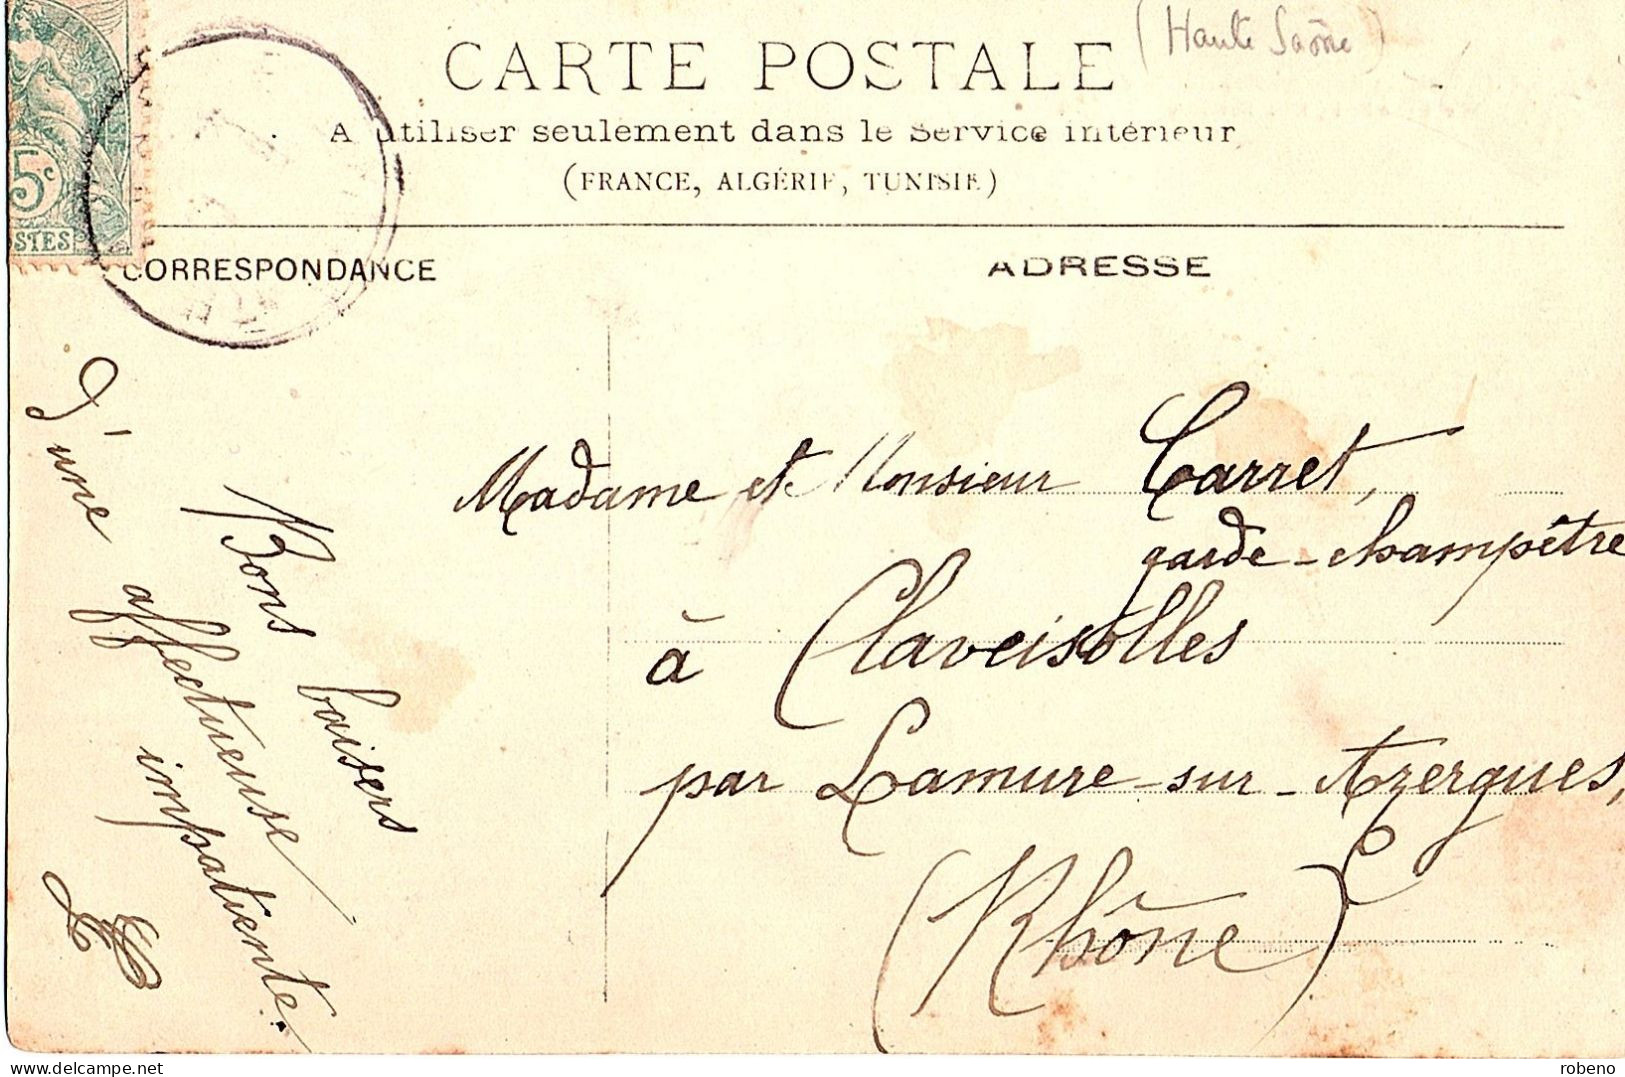 (Haute Saône)
CARTE POSTALE
A utiliser seulement dans le Service intérieur
(FRANCE, ALGÉRIE, TUNISIE)
5c
POSTES
CORRESPONDANCE
ADRESSE
Bons baisers
d'une affectueuse
impatiente.
Madame et Monsieur Carret,
garde-champêtre
à Claveisolles
par Lamure-sur-Azergues,
(Rhône)
robeno